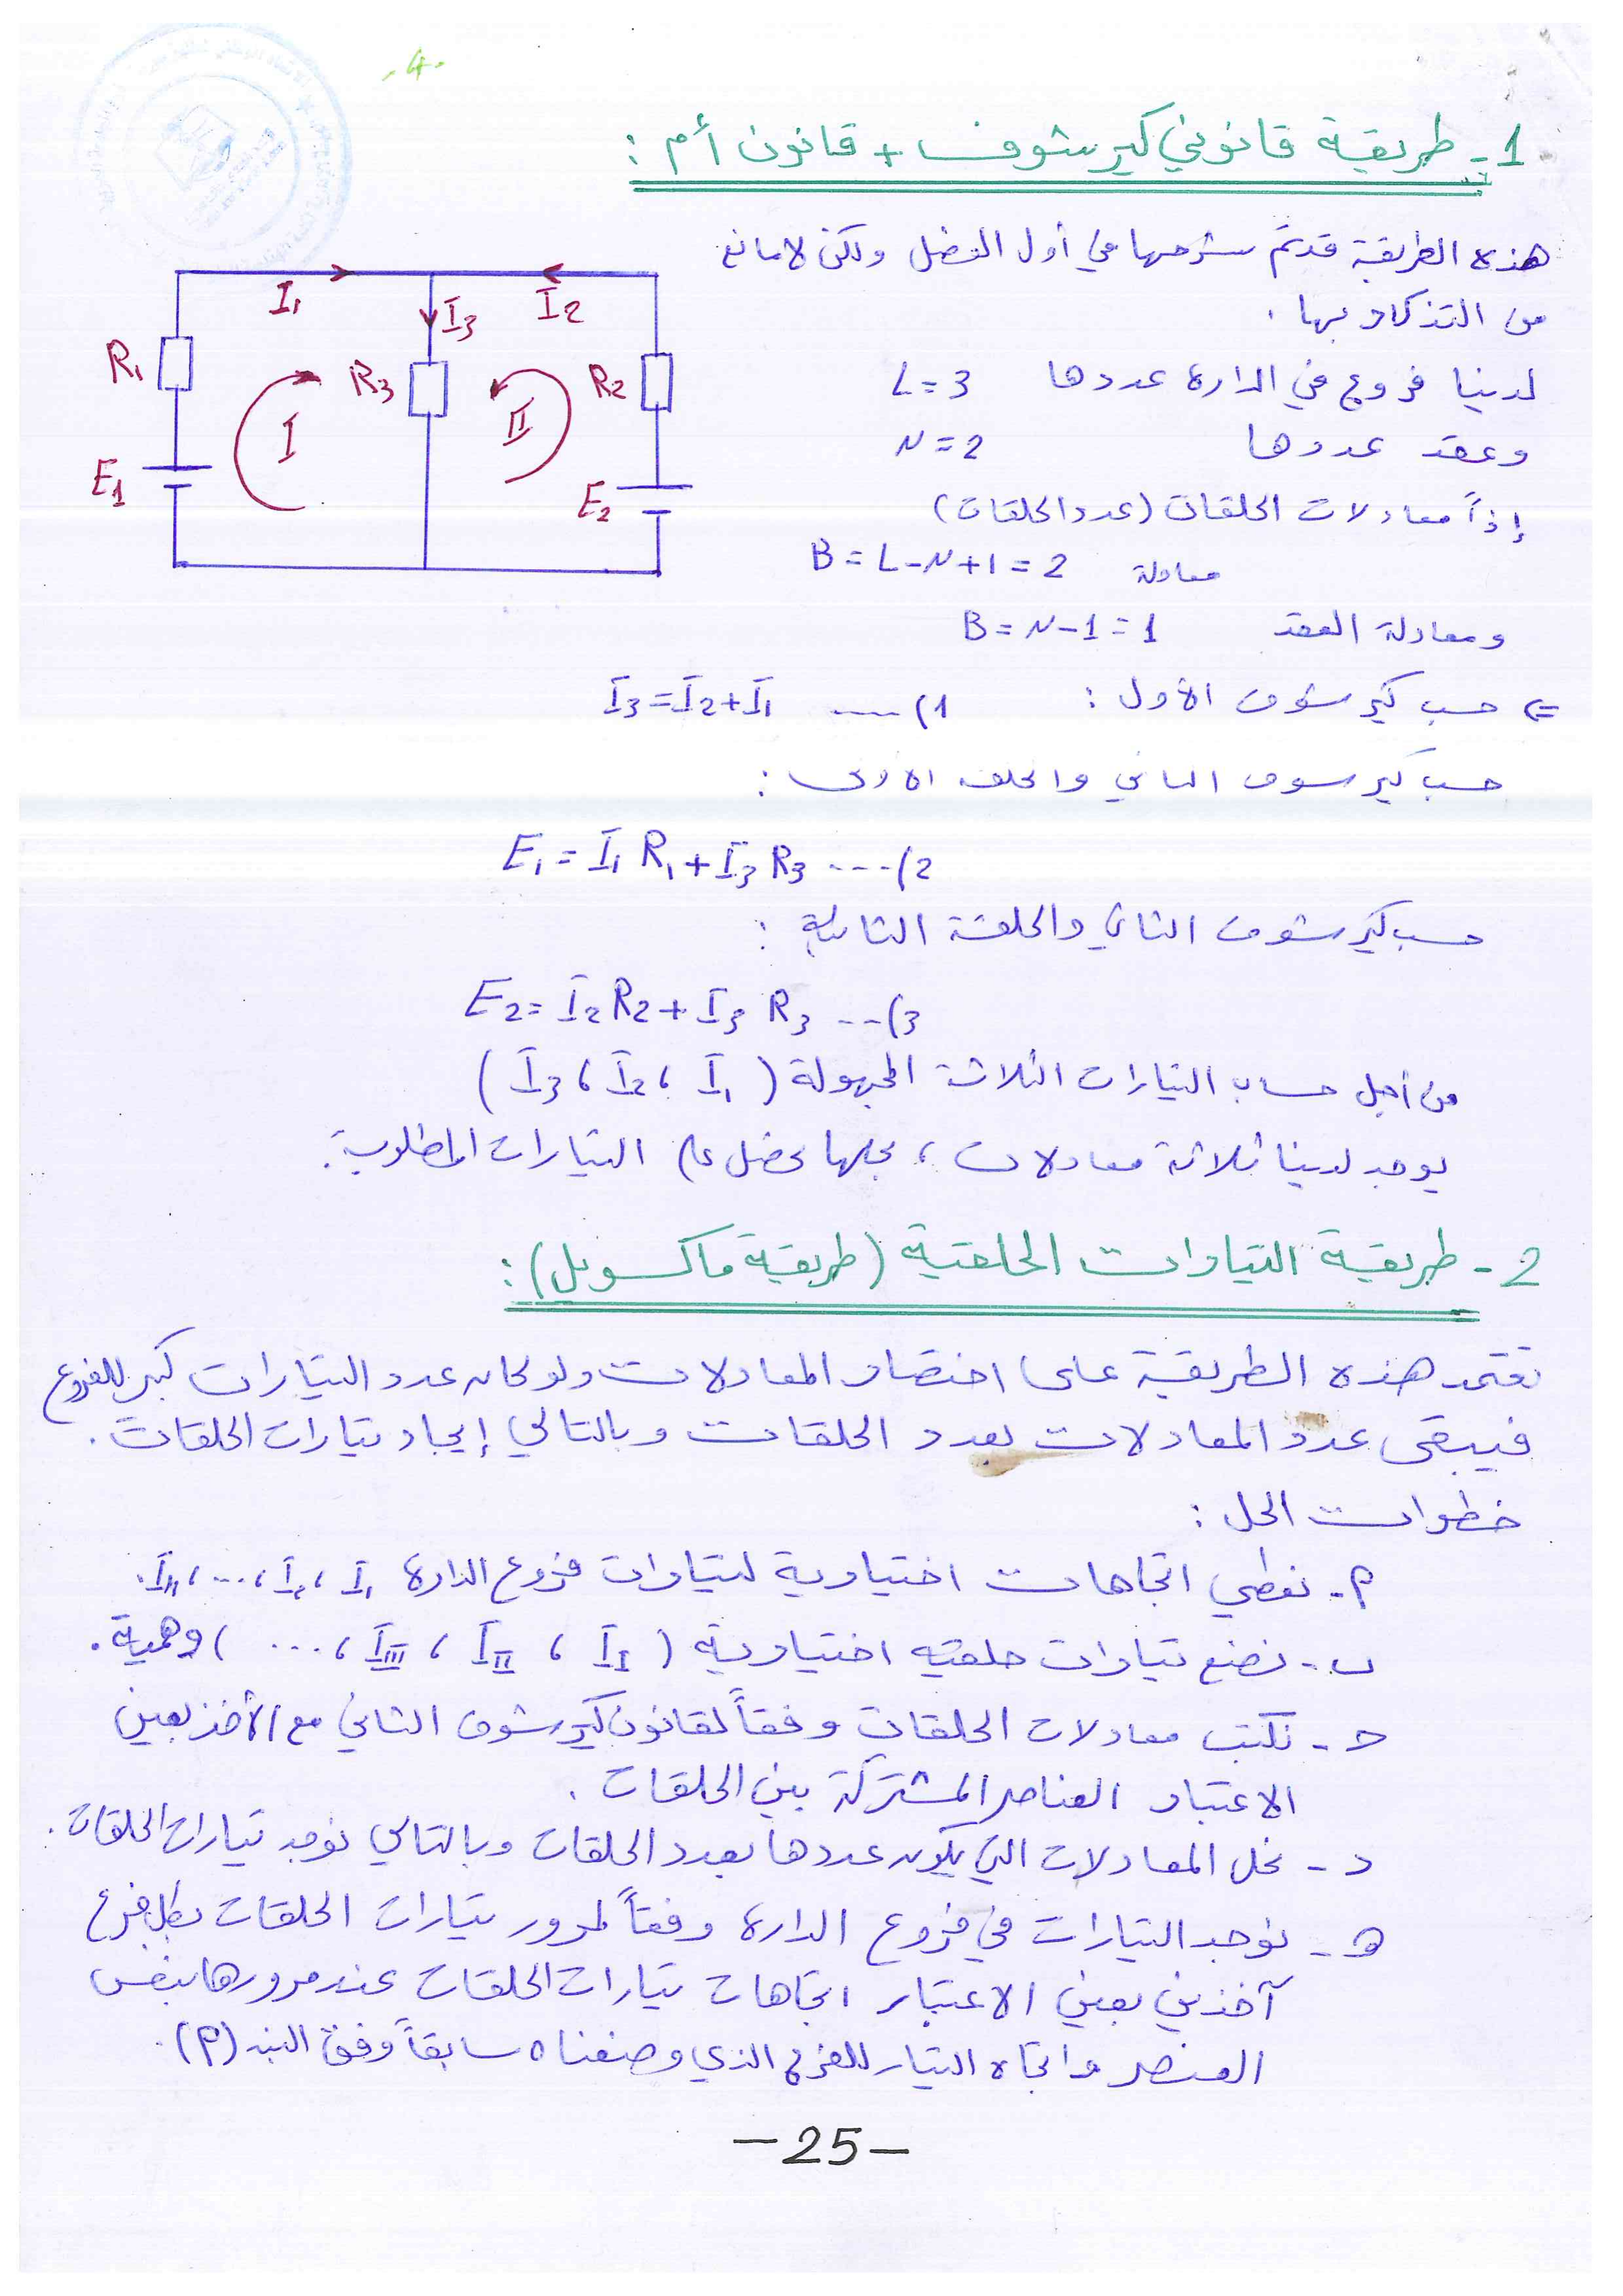 -4-
1- طريقة قانوني كيرشوف + قانون أم :
هذه الطريقة قد تم شرحها في أول الفصل ولكن لا مانع
من التذكار بها .
I1
I3
I2
R1
R3
R2
I
II
E1
E2
لدينا فروع في الدارة عددها L=3
وعقد عددها N=2
إذاً معادلات الحلقات (عدد الحلقات)
B=L-N+1=2 معادلة
ومعادلة العقد B=N-1=1
<= حسب كيرشوف الأول : I3=I2+I1 ---- (1
حسب كيرشوف الثاني والحلقة الأولى :
E1=I1 R1+I3 R3 ---(2
حسب كيرشوف الثاني والحلقة الثانية :
E2=I2 R2+I3 R3 --(3
من أجل حساب التيارات الثلاثة المجهولة ( I1 ، I2 ، I3 )
يوجد لدينا ثلاثة معادلات ، بحلها نحصل على التيارات المطلوبة.
2- طريقة التيارات الحلقية (طريقة ماكسويل) :
تعتمد هذه الطريقة على اختصار المعادلات ولو كان عدد التيارات كبير للفروع
فيبقى عدد المعادلات بعدد الحلقات وبالتالي إيجاد تيارات الحلقات .
خطوات الحل :
م- نعطي اتجاهات اختيارية لتيارات فروع الدارة I1 ، I2 ، ... ، In .
ب- نضع تيارات حلقيه اختيارية ( II ، III ، IIII ، ... ) وهمية .
ح- نكتب معادلات الحلقات وفقاً لقانون كيرشوف الثاني مع الأخذ بعين
الاعتبار العناصر المشتركة بين الحلقات .
د- نحل المعادلات التي يكون عددها بعدد الحلقات وبالتالي نوجد تيارات الحلقات .
هـ- نوجد التيارات في فروع الدارة وفقاً لمرور تيارات الحلقات بكل فرع
آخذين بعين الاعتبار اتجاهات تيارات الحلقات عند مرورها بنفس
العنصر واتجاه التيار للفرع الذي وضعناه سابقاً وفق البند (م) .
-25-